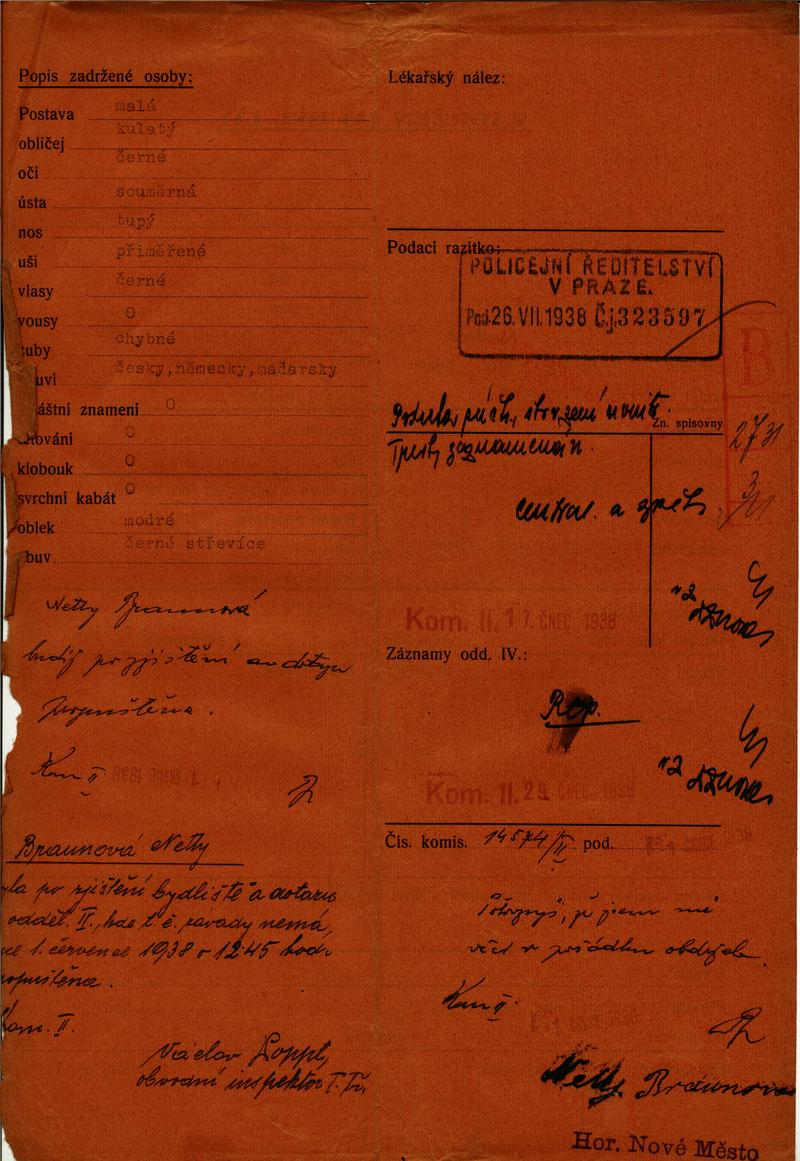 Popis zadržené osoby:
Postava malá
obličej kulatý
oči černé
ústa souměrná
nos tupý
uši přiměřené
vlasy černé
vousy 0
zuby chybné
mluví česky, německy, maďarsky
áštní znamení 0
tování 0
klobouk 0
svrchní kabát 0
oblek modré
buv černé střevíce
Netty Braunová
budiž po zjištění a
propuštěna.
Kom II
Braunová Netty
yla po zjištění bydliště a dotazu
odděl. II, kde t. č. závady nemá,
ne 1. července 1938 v 12:45 hod.
opuštěna.
Kom. II.
Václav
obvodní inspektor
Lékařský nález:
Podací razítko:
POLICEJNÍ ŘEDITELSTVÍ
V PRAZE.
Pod. 26. VII. 1938 Č.j. 323597
B
Zn. spisovny
2731
Trest zaznamenán.
central. a zpět.
Kom. II. 17. ČNEC. 1938
Záznamy odd. IV.:
Rep.
Kom. II. 29. ČNEC. 1938
Čís. komis. 14574/II pod.
Potvrzuji, že jsem mé
věci v pořádku obdržela.
Kom II
Netty Braunová
Hor. Nové Město